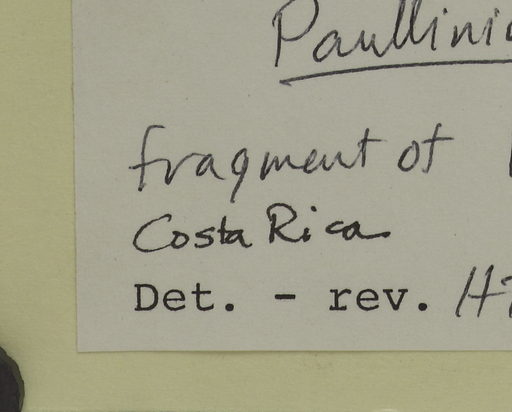 Paullini
fragment of
Costa Rica
Det. - rev.